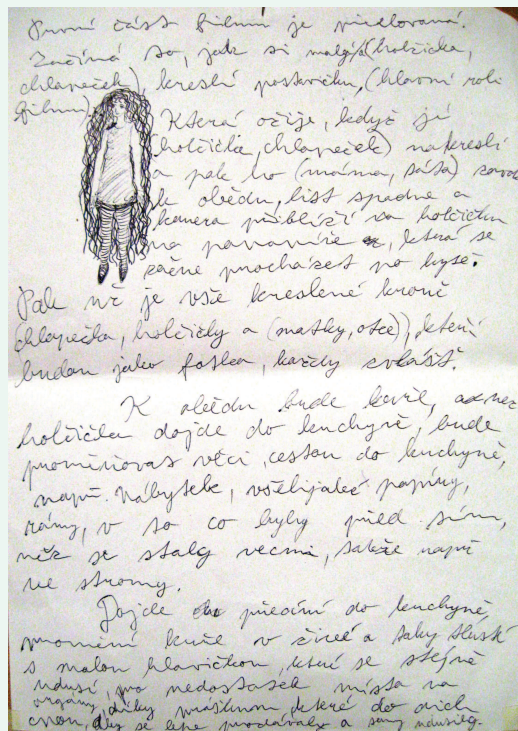 První část filmu je
Začíná to, jak si malý(á) (holčička,
chlapeček), kreslí postavičku, (hlavní roli
filmu)
Která ožije, když jí
(holčička, chlapeček) nakreslí
a pak ho (máma, táta)
k obědu, list spadne a
kamera přiblíží na holčičku
na papíře, která se
začne procházet po bytě.
Pak už je vše kreslené kromě
chlapečka, holčičky a (matky, otce), kteří
budou jako fotka, každý zvlášť.
K obědu bude kuře, než
holčička dojde do kuchyně, bude
proměňovat věci, cestou do kuchyně,
např. nábytek, všelijaké papíry,
rámy, v to co byly před tím,
než se staly věcmi, takže např
ve stromy.
Dojde do kuchyně
promění kuře v živé a taky tlusté
s malou hlavičkou, které se stejně
udusí, pro nedostatek místa na
orgány, díky práškům, které do nich
cpou, aby se lépe prodávaly a samy udusily.